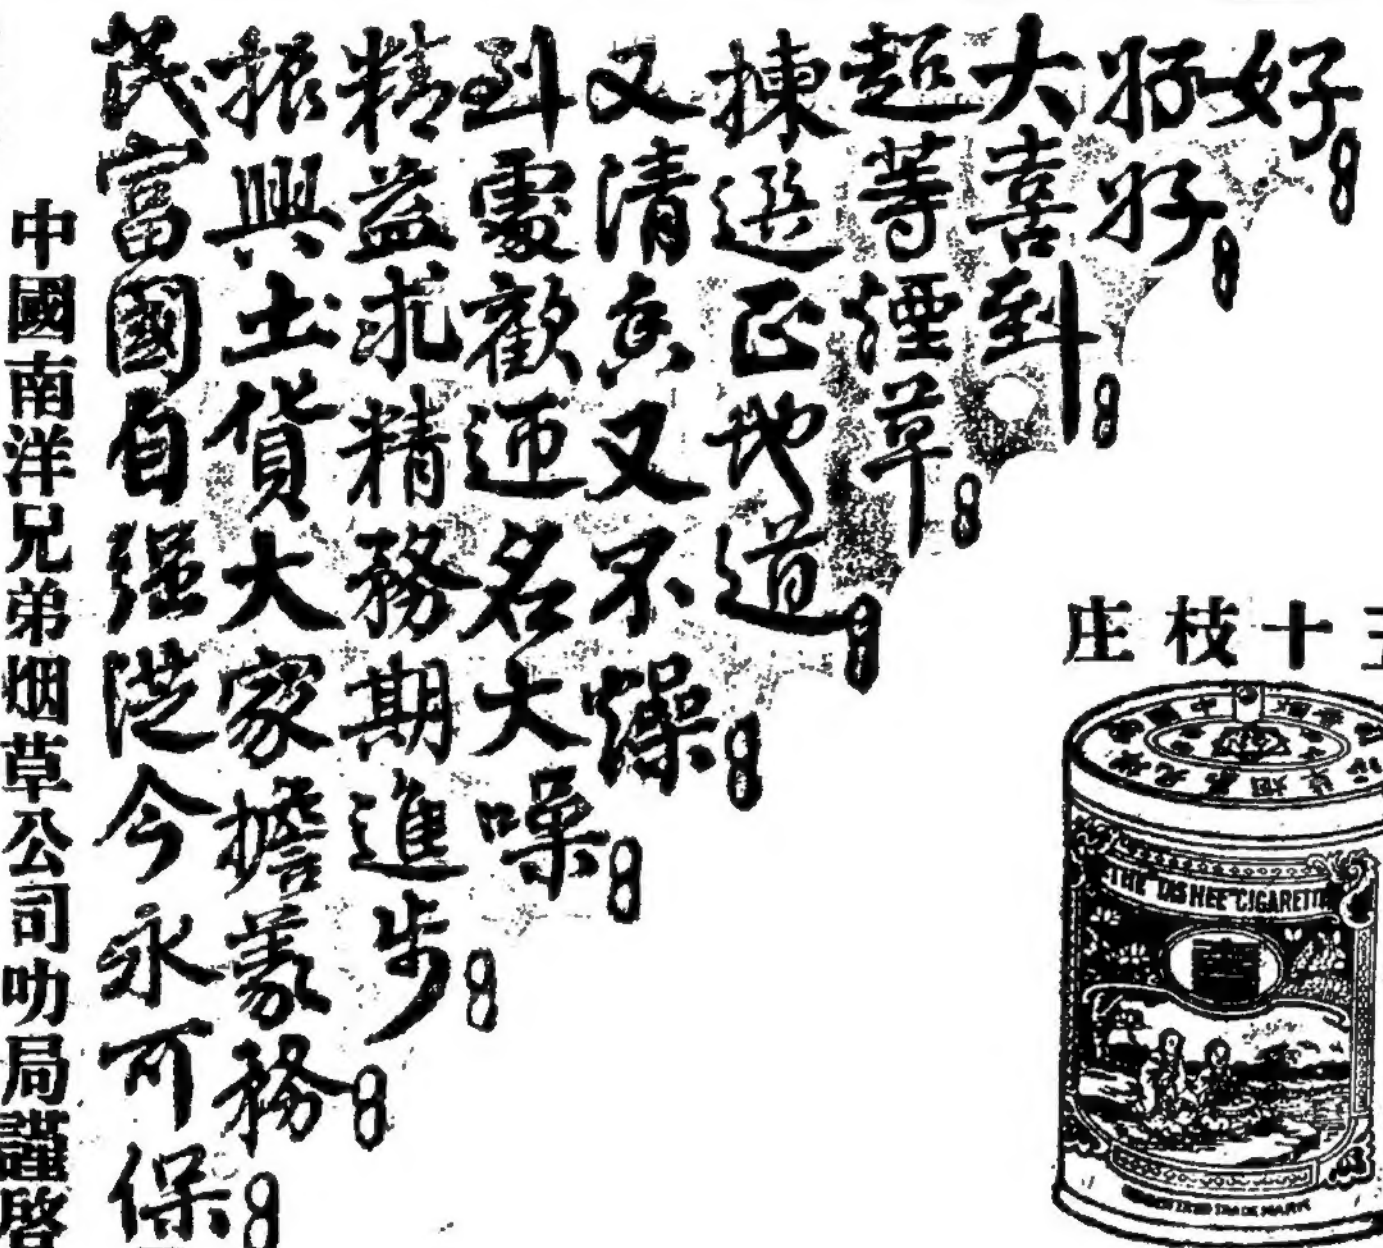 好
好好
大喜到
超等煙草
揀選正地道
又清香又不燥
到處歡迎名大噪
精益求精務期進步
振興土貨大家擔義務
民富國自强從今永可保
中國南洋兄弟烟草公司叻局謹啓
十枝庄
THE "TAS HEE" CIGARETTE